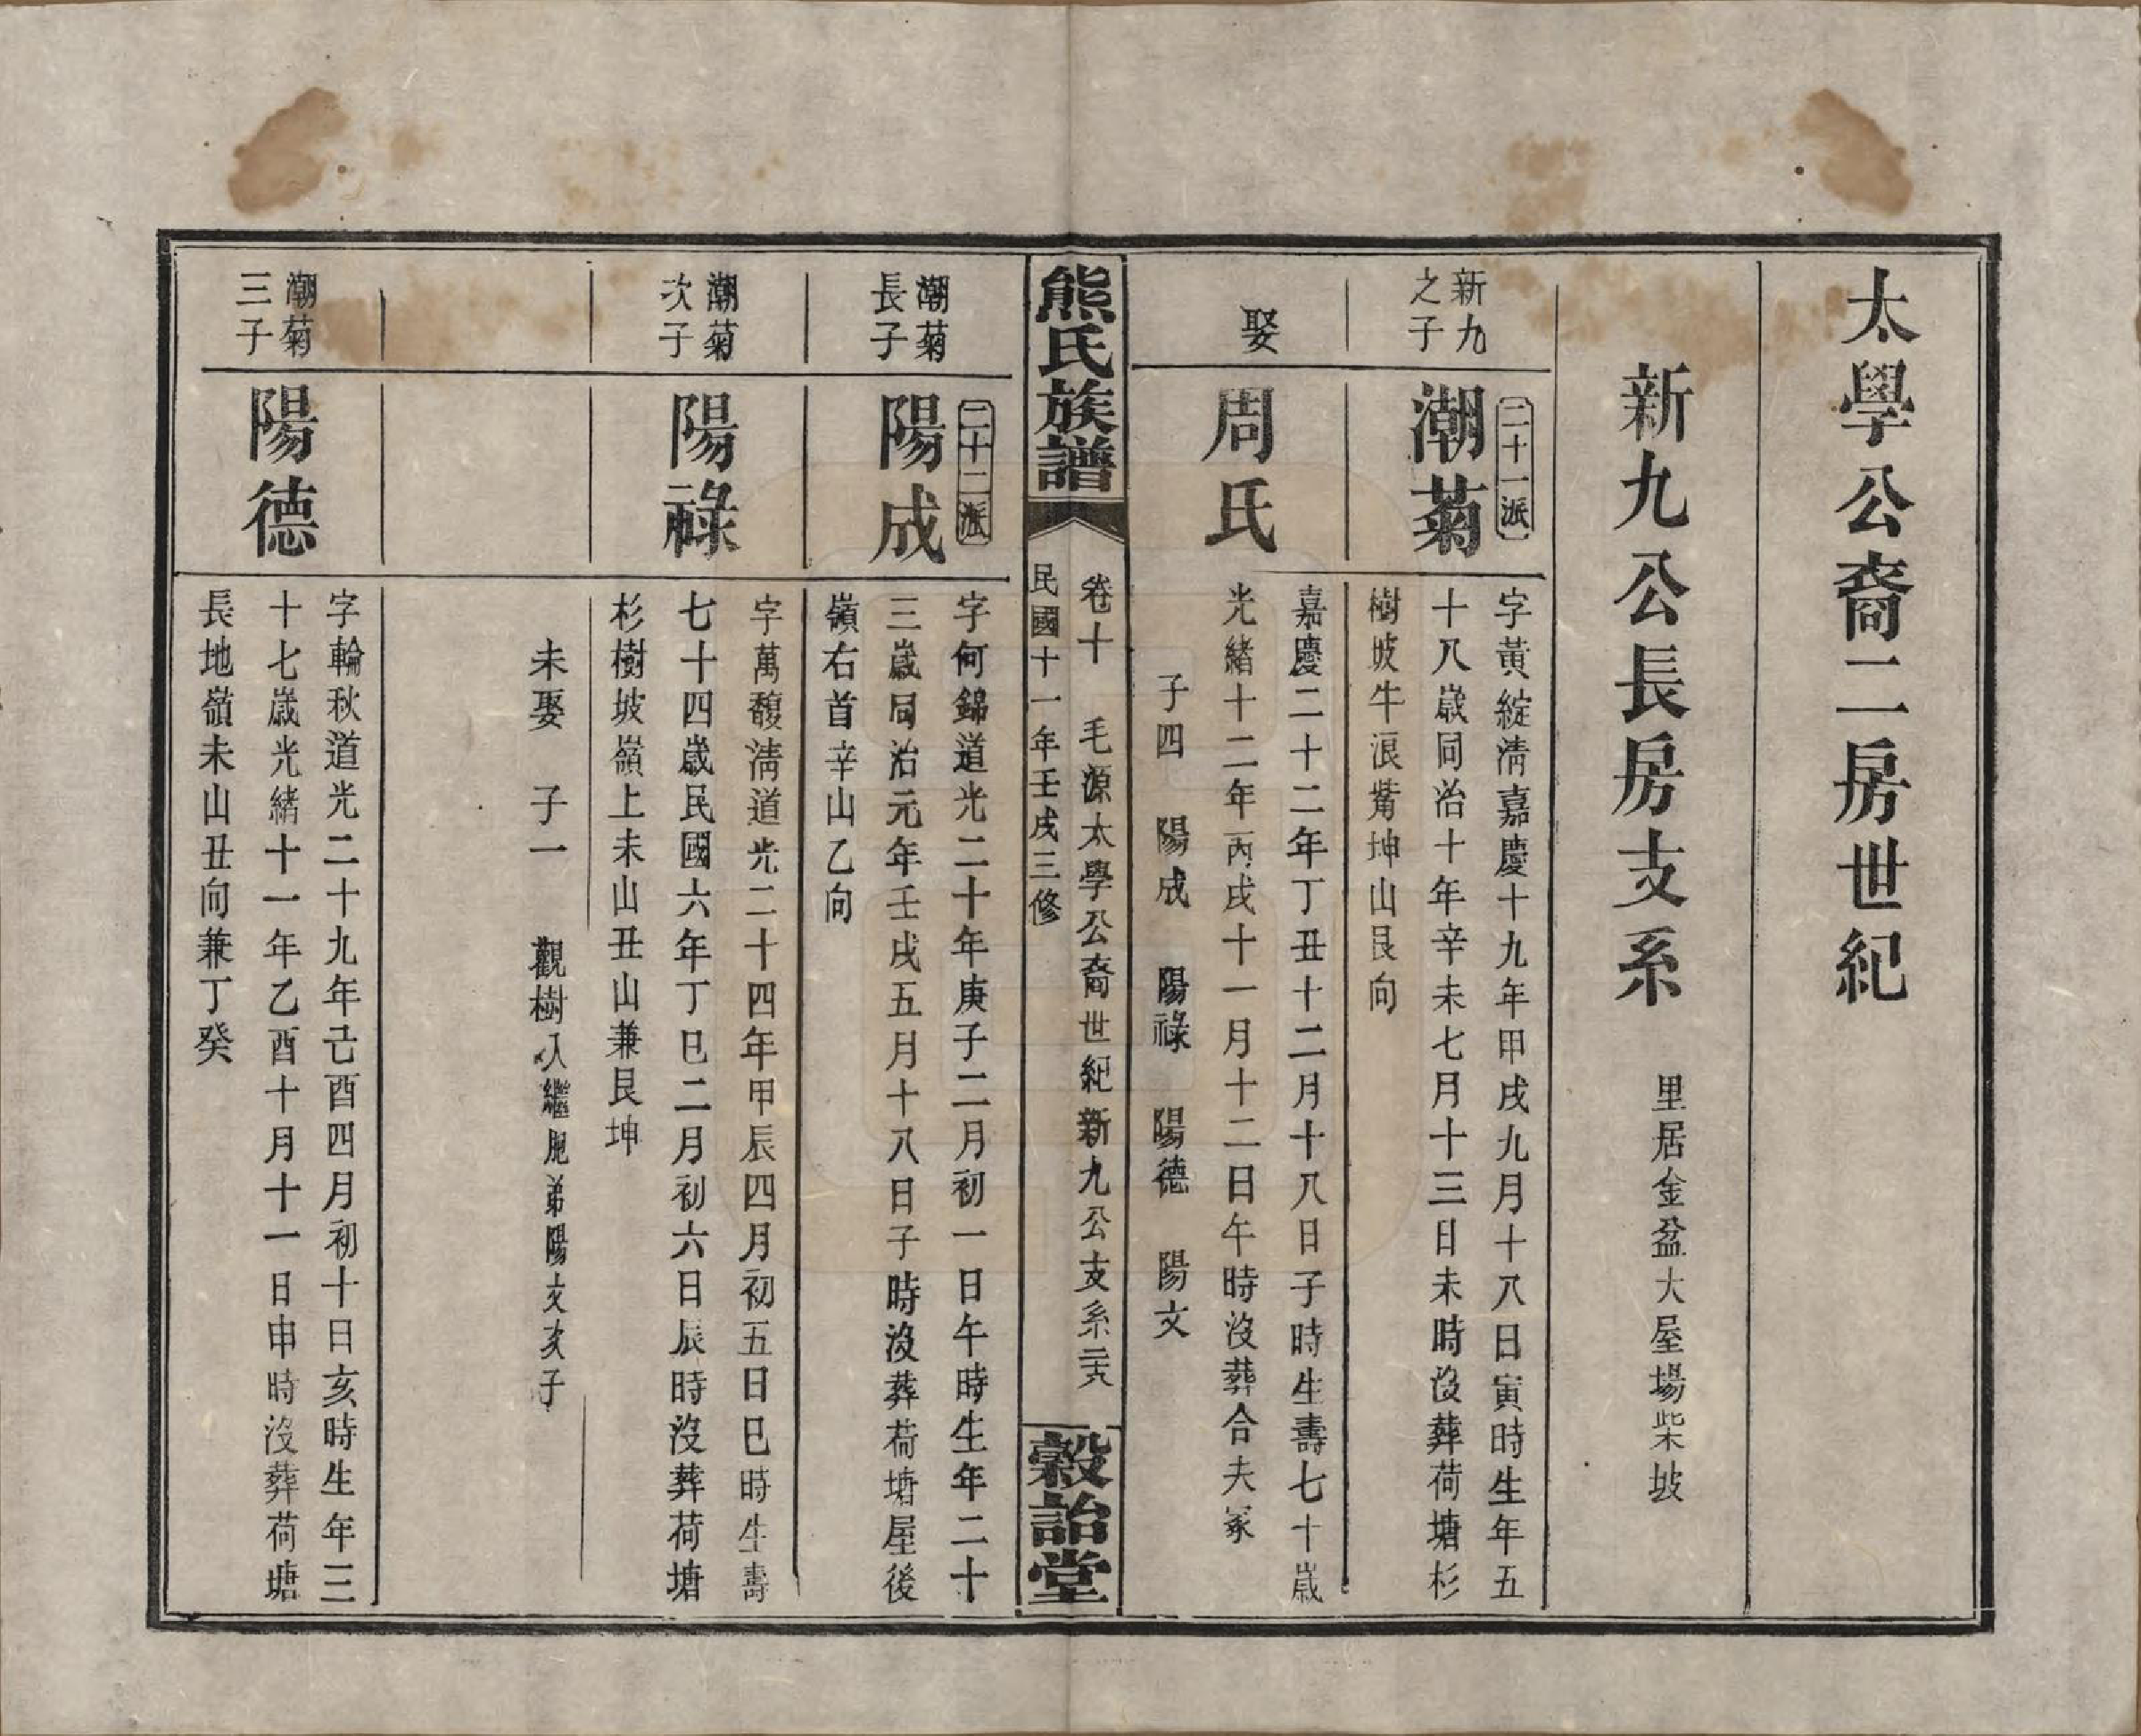 太學公裔二房世紀
新九公長房支系
里居金盆大屋場柴坡
新九
之子
二十一派
潮菊
字黃綻淸嘉慶十九年甲戌九月十八日寅時生年五
十八歲同治十年辛未七月十三日未時沒葬荷塘杉
樹坡牛浪觜坤山艮向
娶
周氏
嘉慶二十二年丁丑十二月十八日子時生壽七十歲
光緖十二年丙戌十一月十二日午時沒葬合夫冢
子四 陽成 陽祿 陽德 陽文
熊氏族譜
卷十 毛源太學公裔世紀新九公支系
民國十一年壬戌三修
穀詒堂
潮菊
長子
二十二派
陽成
字何錦道光二十年庚子二月初一日午時生年二十
三歲同治元年壬戌五月十八日子時沒葬荷塘屋後
嶺右首辛山乙向
潮菊
次子
陽祿
字萬馥淸道光二十四年甲辰四月初五日巳時生壽
七十四歲民國六年丁巳二月初六日辰時沒葬荷塘
杉樹坡嶺上未山丑山兼艮坤
未娶 子一 觀樹入繼胞弟陽文次子
潮菊
三子
陽德
字輪秋道光二十九年己酉四月初十日亥時生年三
十七歲光緖十一年乙酉十月十一日申時沒葬荷塘
長地嶺未山丑向兼丁癸